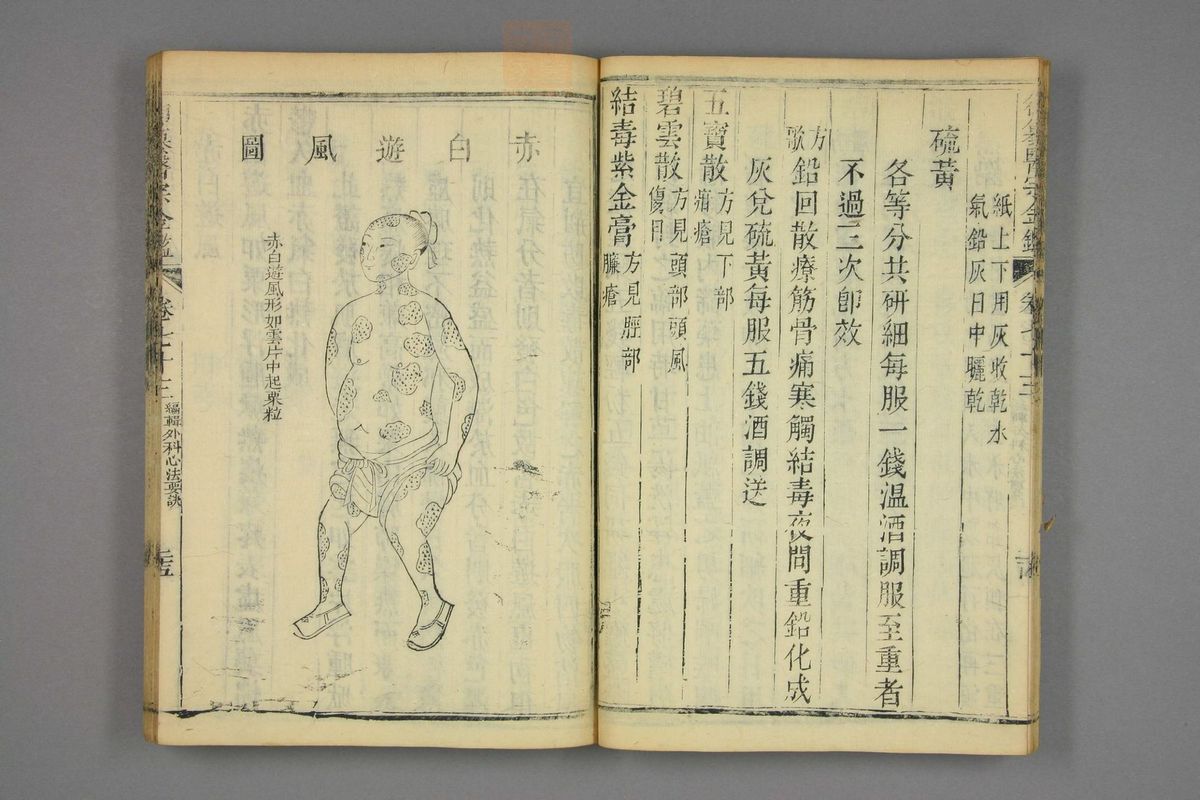 紙上下用灰收乾水
氣鉛灰日中曬乾
硫黄
各等分共研細每服一錢溫酒調服至重者
不過三次卽效
方歌
鉛回散療筋骨痛寒觸結毒夜間重鉛化成
灰兌硫黄每服五錢酒調送
五寶散
方見下部
疳瘡
碧雲散
方見頭部頭風
傷目
結毒紫金膏
方見脛部
臁瘡
赤白遊風圖
赤白遊風形如雲片中起粟粒
卷七十三
編輯外科心法要訣